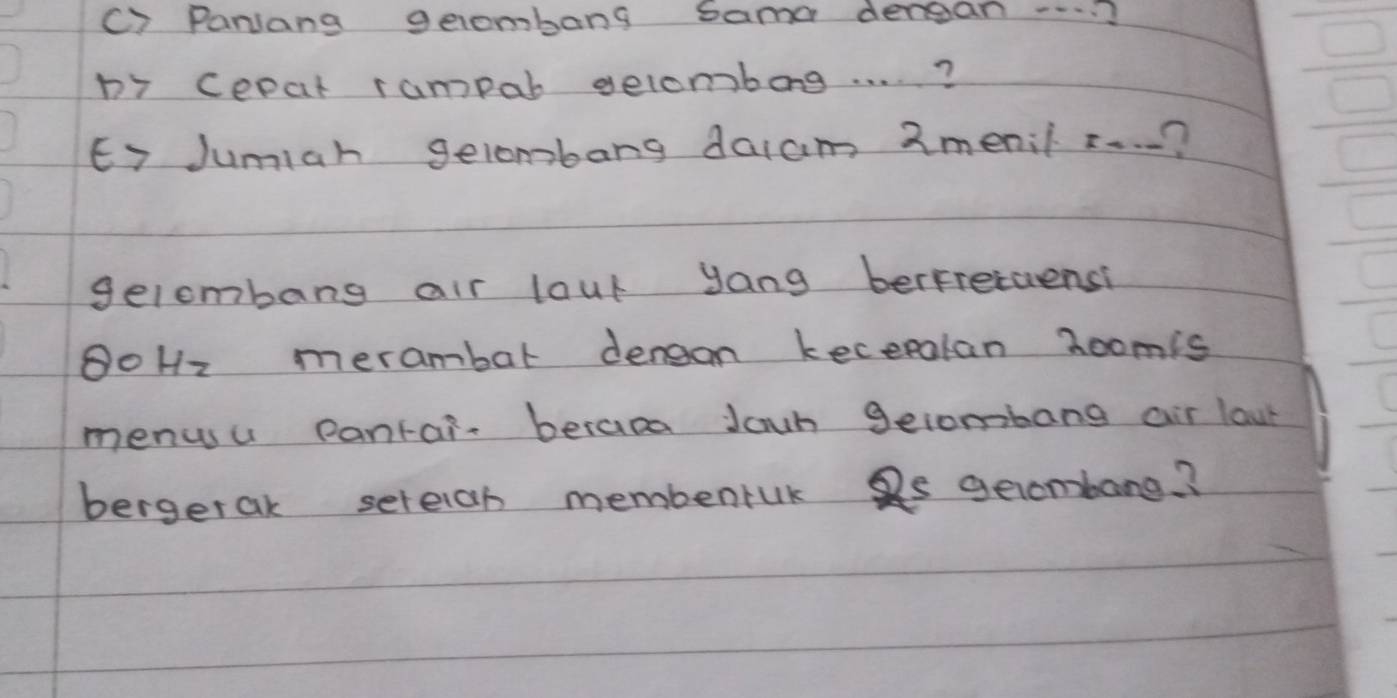 C> Panjang gelombang sama dengan ....?
D> Cepat rampab gelombang ....?
E> Jumlah gelombang dalam 2 menit = ....?
gelombang air laut yang berfrekuensi
80 Hz merambat dengan kecepatan 200 m/s
menuju pantai. berapa jauh gelombang air laut
bergerak setelah membentuk 25 gelombang?